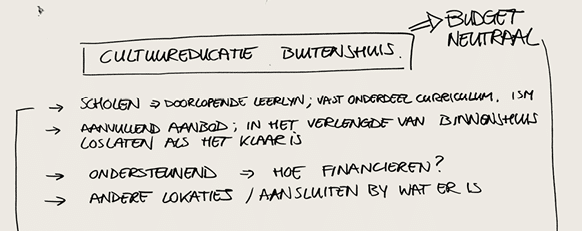 ⇒ BUDGET
NEUTRAAL
CULTUUREDUCATIE BUITENSHUIS.
→ SCHOLEN ⇒ DOORLOPENDE LEERLYN; VAST ONDERDEEL CURRICULUM. ISM
→ AANVULLEND AANBOD; IN HET VERLENGDE VAN BINNENSHUIS
LOSLATEN ALS HET KLAAR IS
→ ONDERSTEUNEND ⇒ HOE FINANCIEREN?
→ ANDERE LOKATIES / AANSLUITEN BY WAT ER IS